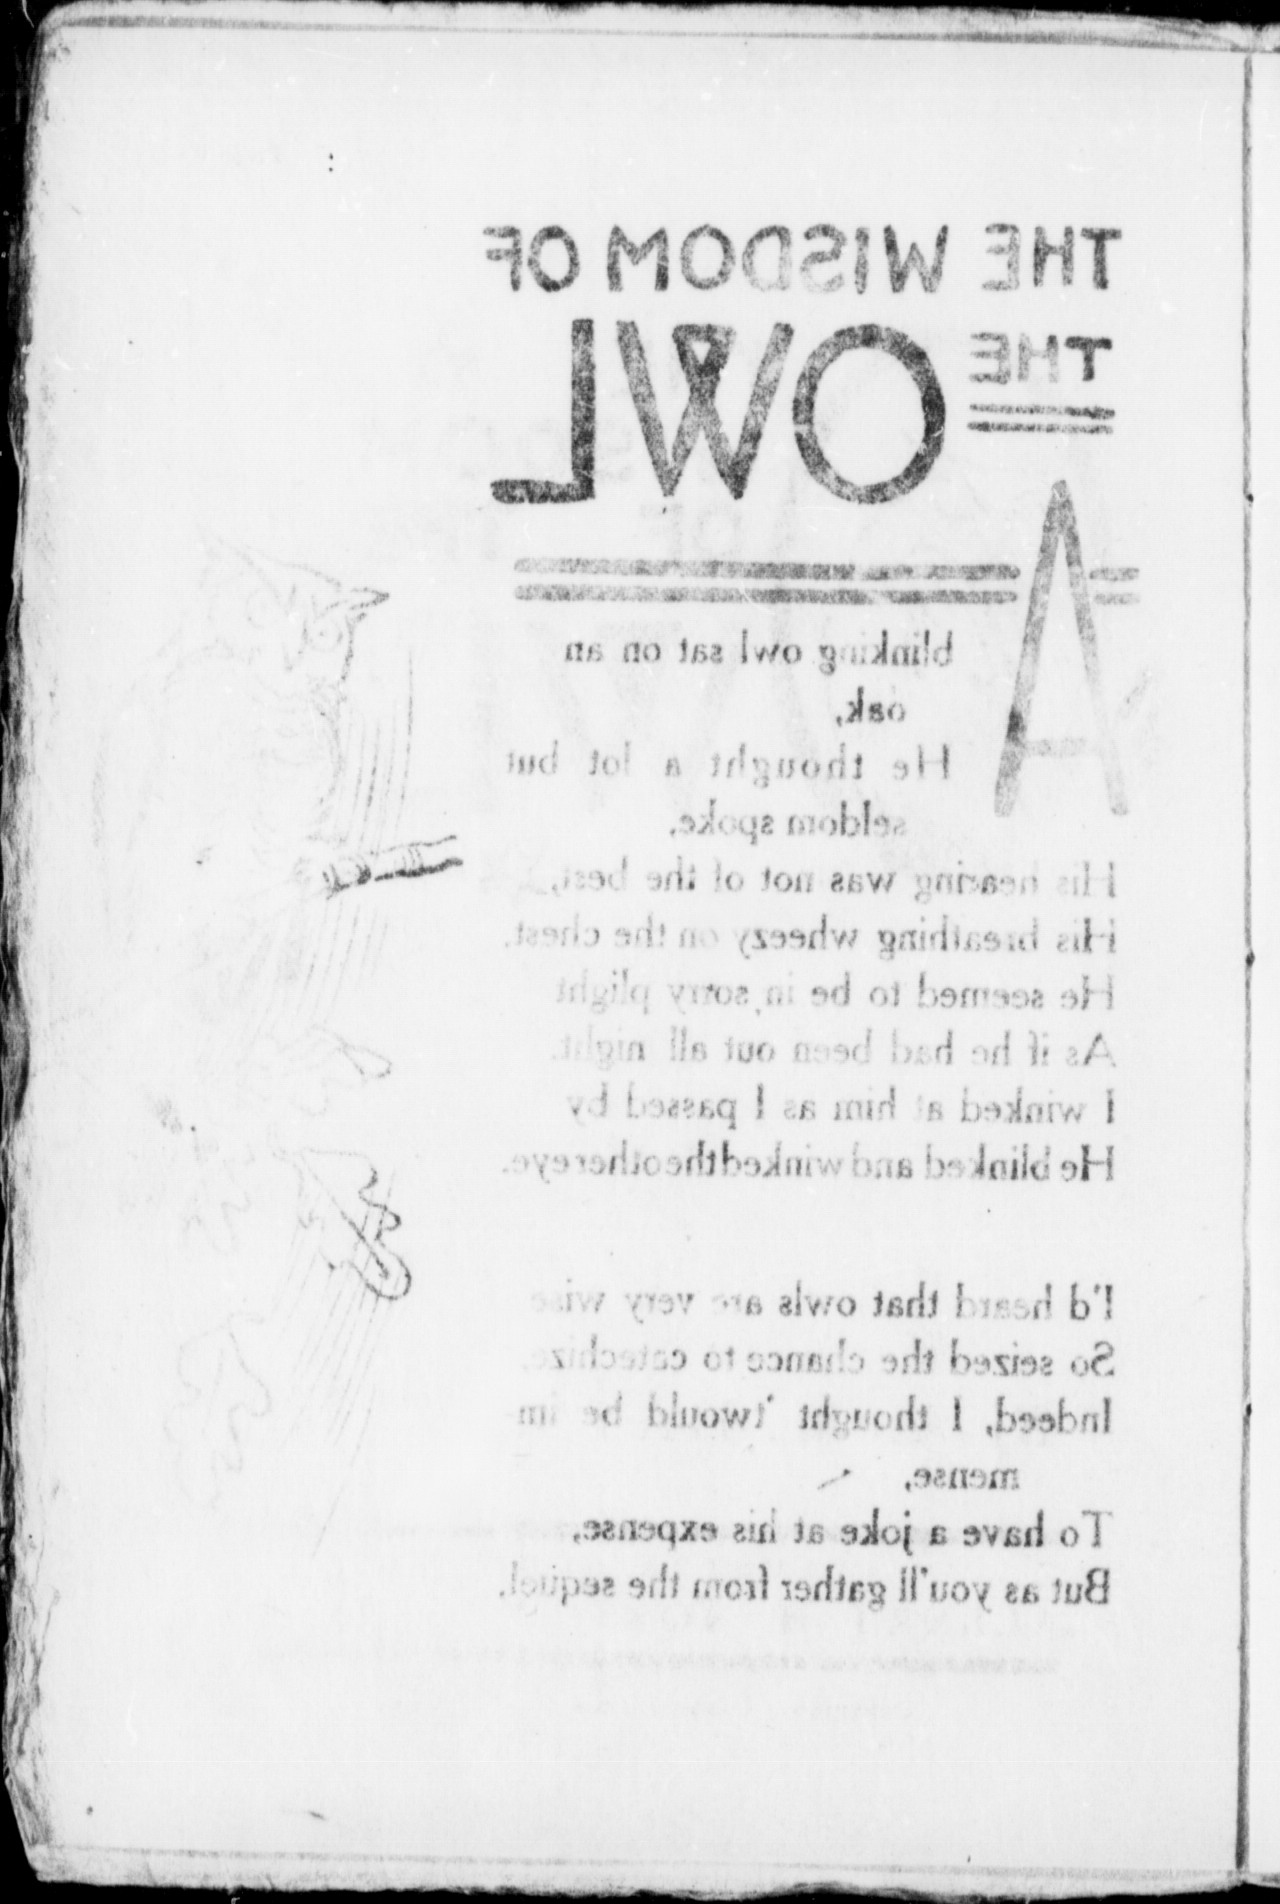 THE WISDOM OF
THE OWL
A blinking owl sat on an
oak,
He thought a lot but
seldom spoke.
His hearing was not of the best,
His breathing wheezy on the chest.
He seemed to be in sorry plight
As if he had been out all night.
I winked at him as I passed by
He blinked and winked the other eye.
I'd heard that owls are very wise
So seized the chance to catechize.
Indeed, I thought 'twould be im-
mense,
To have a joke at his expense,
But as you'll gather from the sequel.